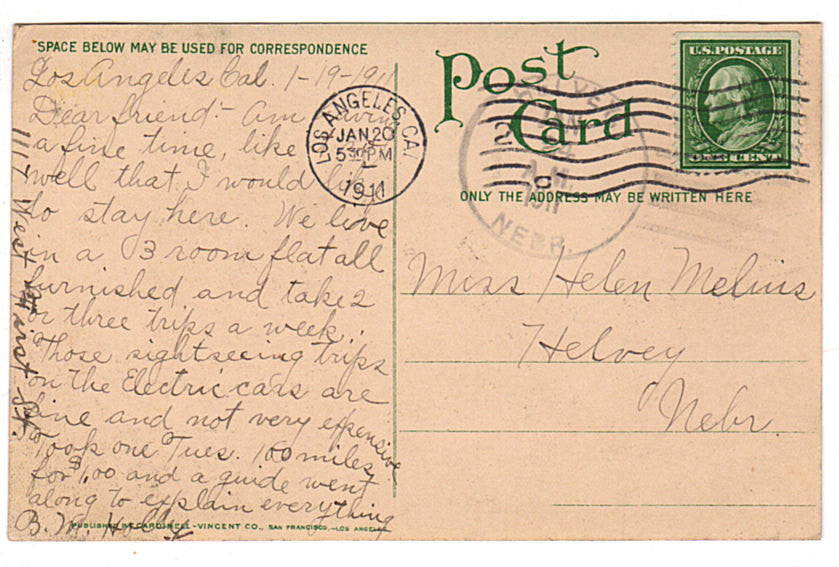 SPACE BELOW MAY BE USED FOR CORRESPONDENCE
Los Angeles Cal. 1-19-1911
Dear friend:- Am
a fine time, like
well that I would like
to stay here. We live
in a 3 room flat all
furnished and take 2
or three trips a week.
Those sightseeing trips
on the Electric cars are
fine and not very expensive
Took one Tues. 100 miles
for $1.00 and a guide went
along to explain everything
B. M.
1117 West First St.
PUBLISHED BY CARDINELL-VINCENT CO., SAN FRANCISCO,-LOS ANGELES
Post
Card
LOS ANGELES, CAL
JAN 20
5 30 PM
1911
A.M.
1911
NEBR.
U.S. POSTAGE
ONE CENT
ONLY THE ADDRESS MAY BE WRITTEN HERE
Miss Helen Melius
Helvey
Nebr.